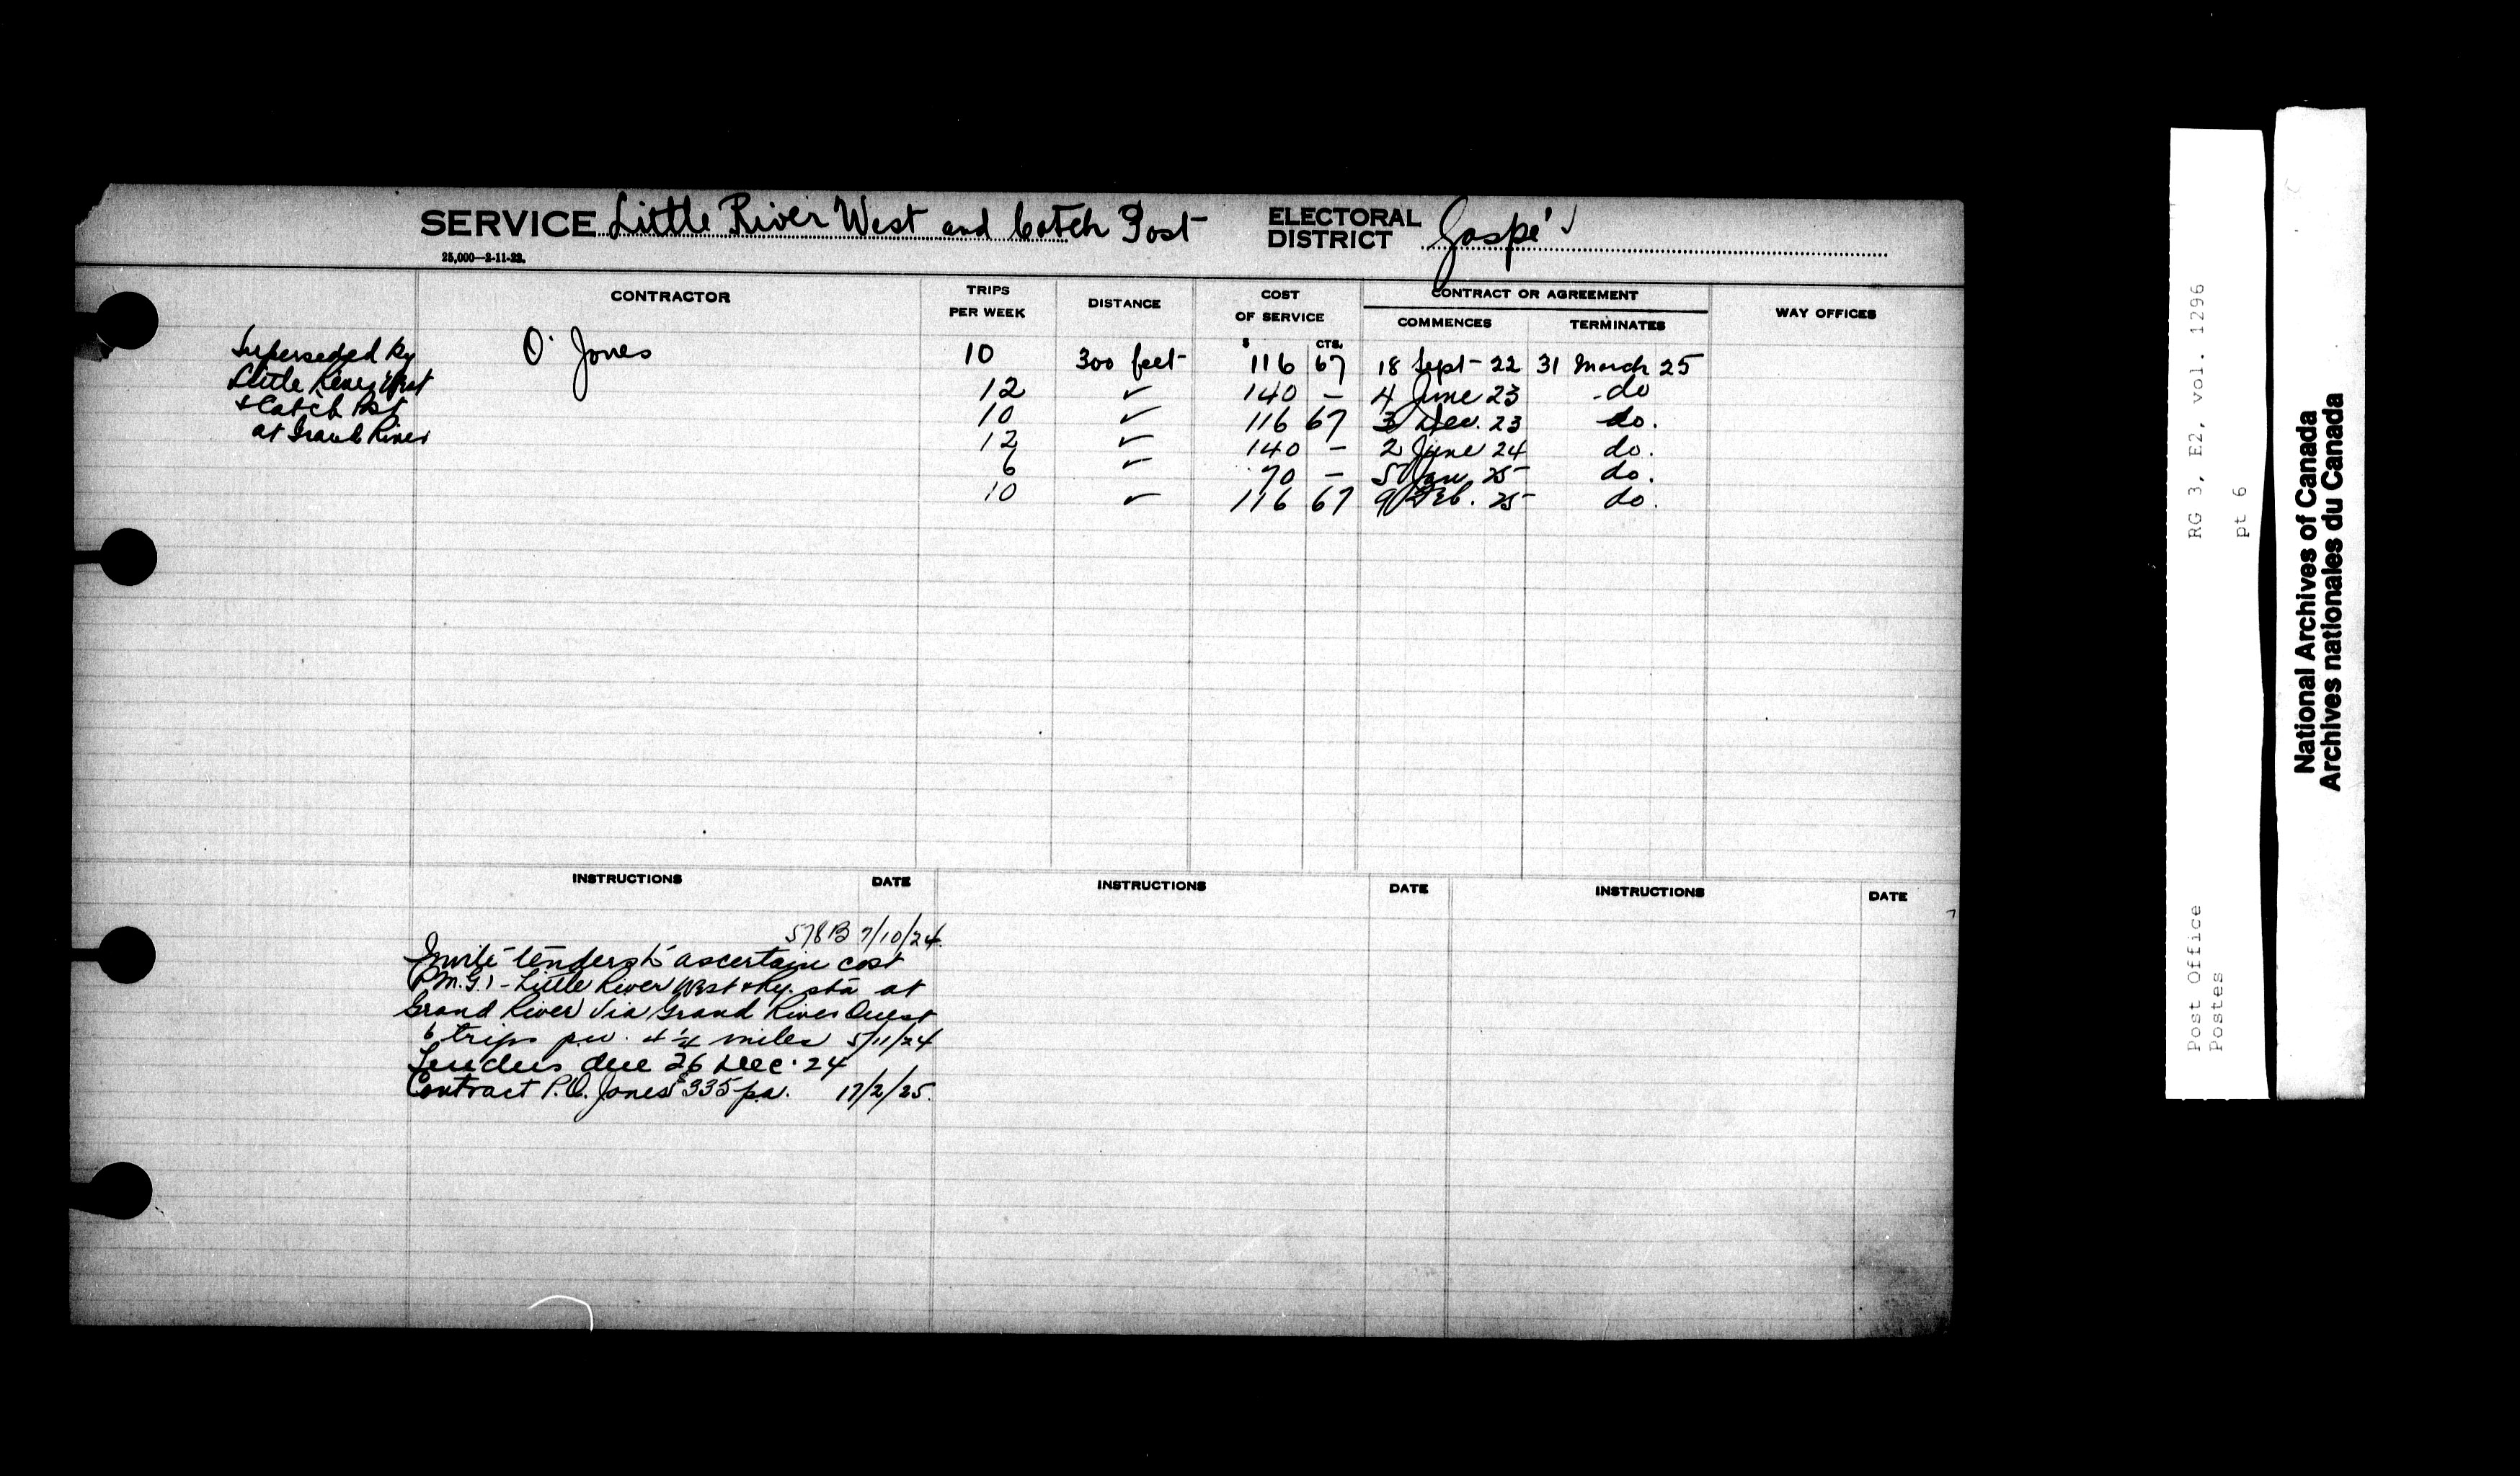 SERVICE Little River West and Catch Post ELECTORAL DISTRICT Gaspé
25,000—2-11-22.
CONTRACTOR TRIPS PER WEEK DISTANCE COST OF SERVICE CONTRACT OR AGREEMENT WAY OFFICES
COMMENCES TERMINATES
$ CTS.
O. Jones 10 300 feet 116 67 18 Sept 22 31 March 25
12 ✓ 140 – 4 June 23 do
10 ✓ 116 67 3 Dec. 23 do.
12 ✓ 140 – 2 June 24 do.
6 ✓ 70 – 5 Jan 25 do.
10 ✓ 116 67 9 Feb. 25 do.
Superseded by
Little River West
& Catch Post
at Grand River
INSTRUCTIONS DATE INSTRUCTIONS DATE INSTRUCTIONS DATE
578B 7/10/24
Invite tenders to ascertain cost
(P.M.G.) - Little River West & Ry. sta at
Grand River via Grand River Ouest
6 trips p.w. 4 1/4 miles 5/11/24
Tenders due 26 Dec. 24
Contract P.O. Jones $335 pa. 17/2/25.
RG 3, E2, vol. 1296
pt 6
Post Office
Postes
National Archives of Canada
Archives nationales du Canada